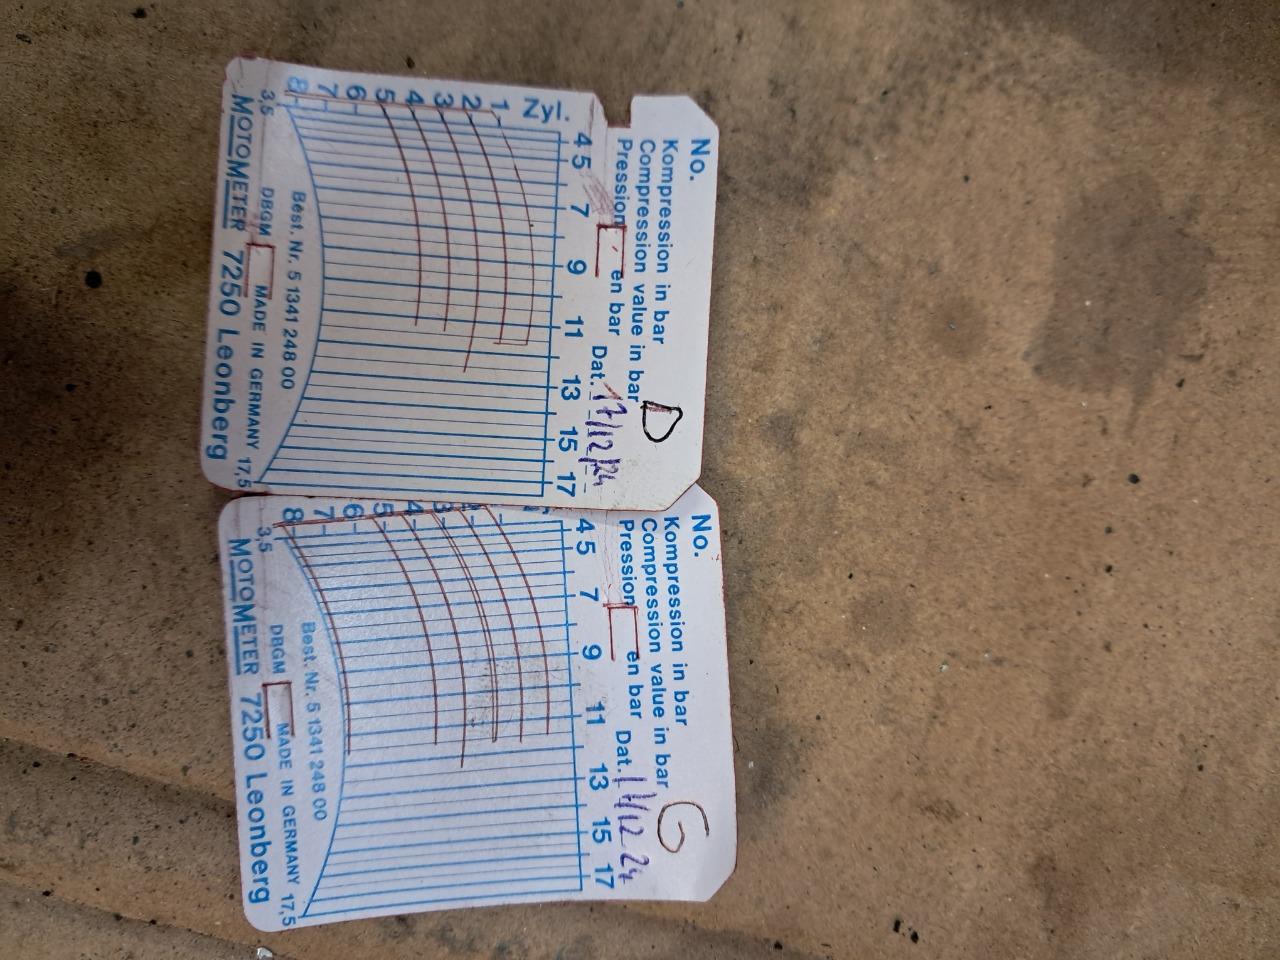 No.
Kompression in bar
Compression value in bar
Pression en bar Dat. 17/12/24
D
4 5 7 9 11 13 15 17
1 2 3 4 5 6 7 8
3,5 17,5
Best. Nr. 5 1341 248 00
DBGM MADE IN GERMANY
MOTOMETER 7250 Leonberg
No.
Kompression in bar
Compression value in bar
Pression en bar Dat. 17/12 24
G
4 5 7 9 11 13 15 17
3 4 5 6 7 8
3,5 17,5
Best. Nr. 5 1341 248 00
DBGM MADE IN GERMANY
MOTOMETER 7250 Leonberg